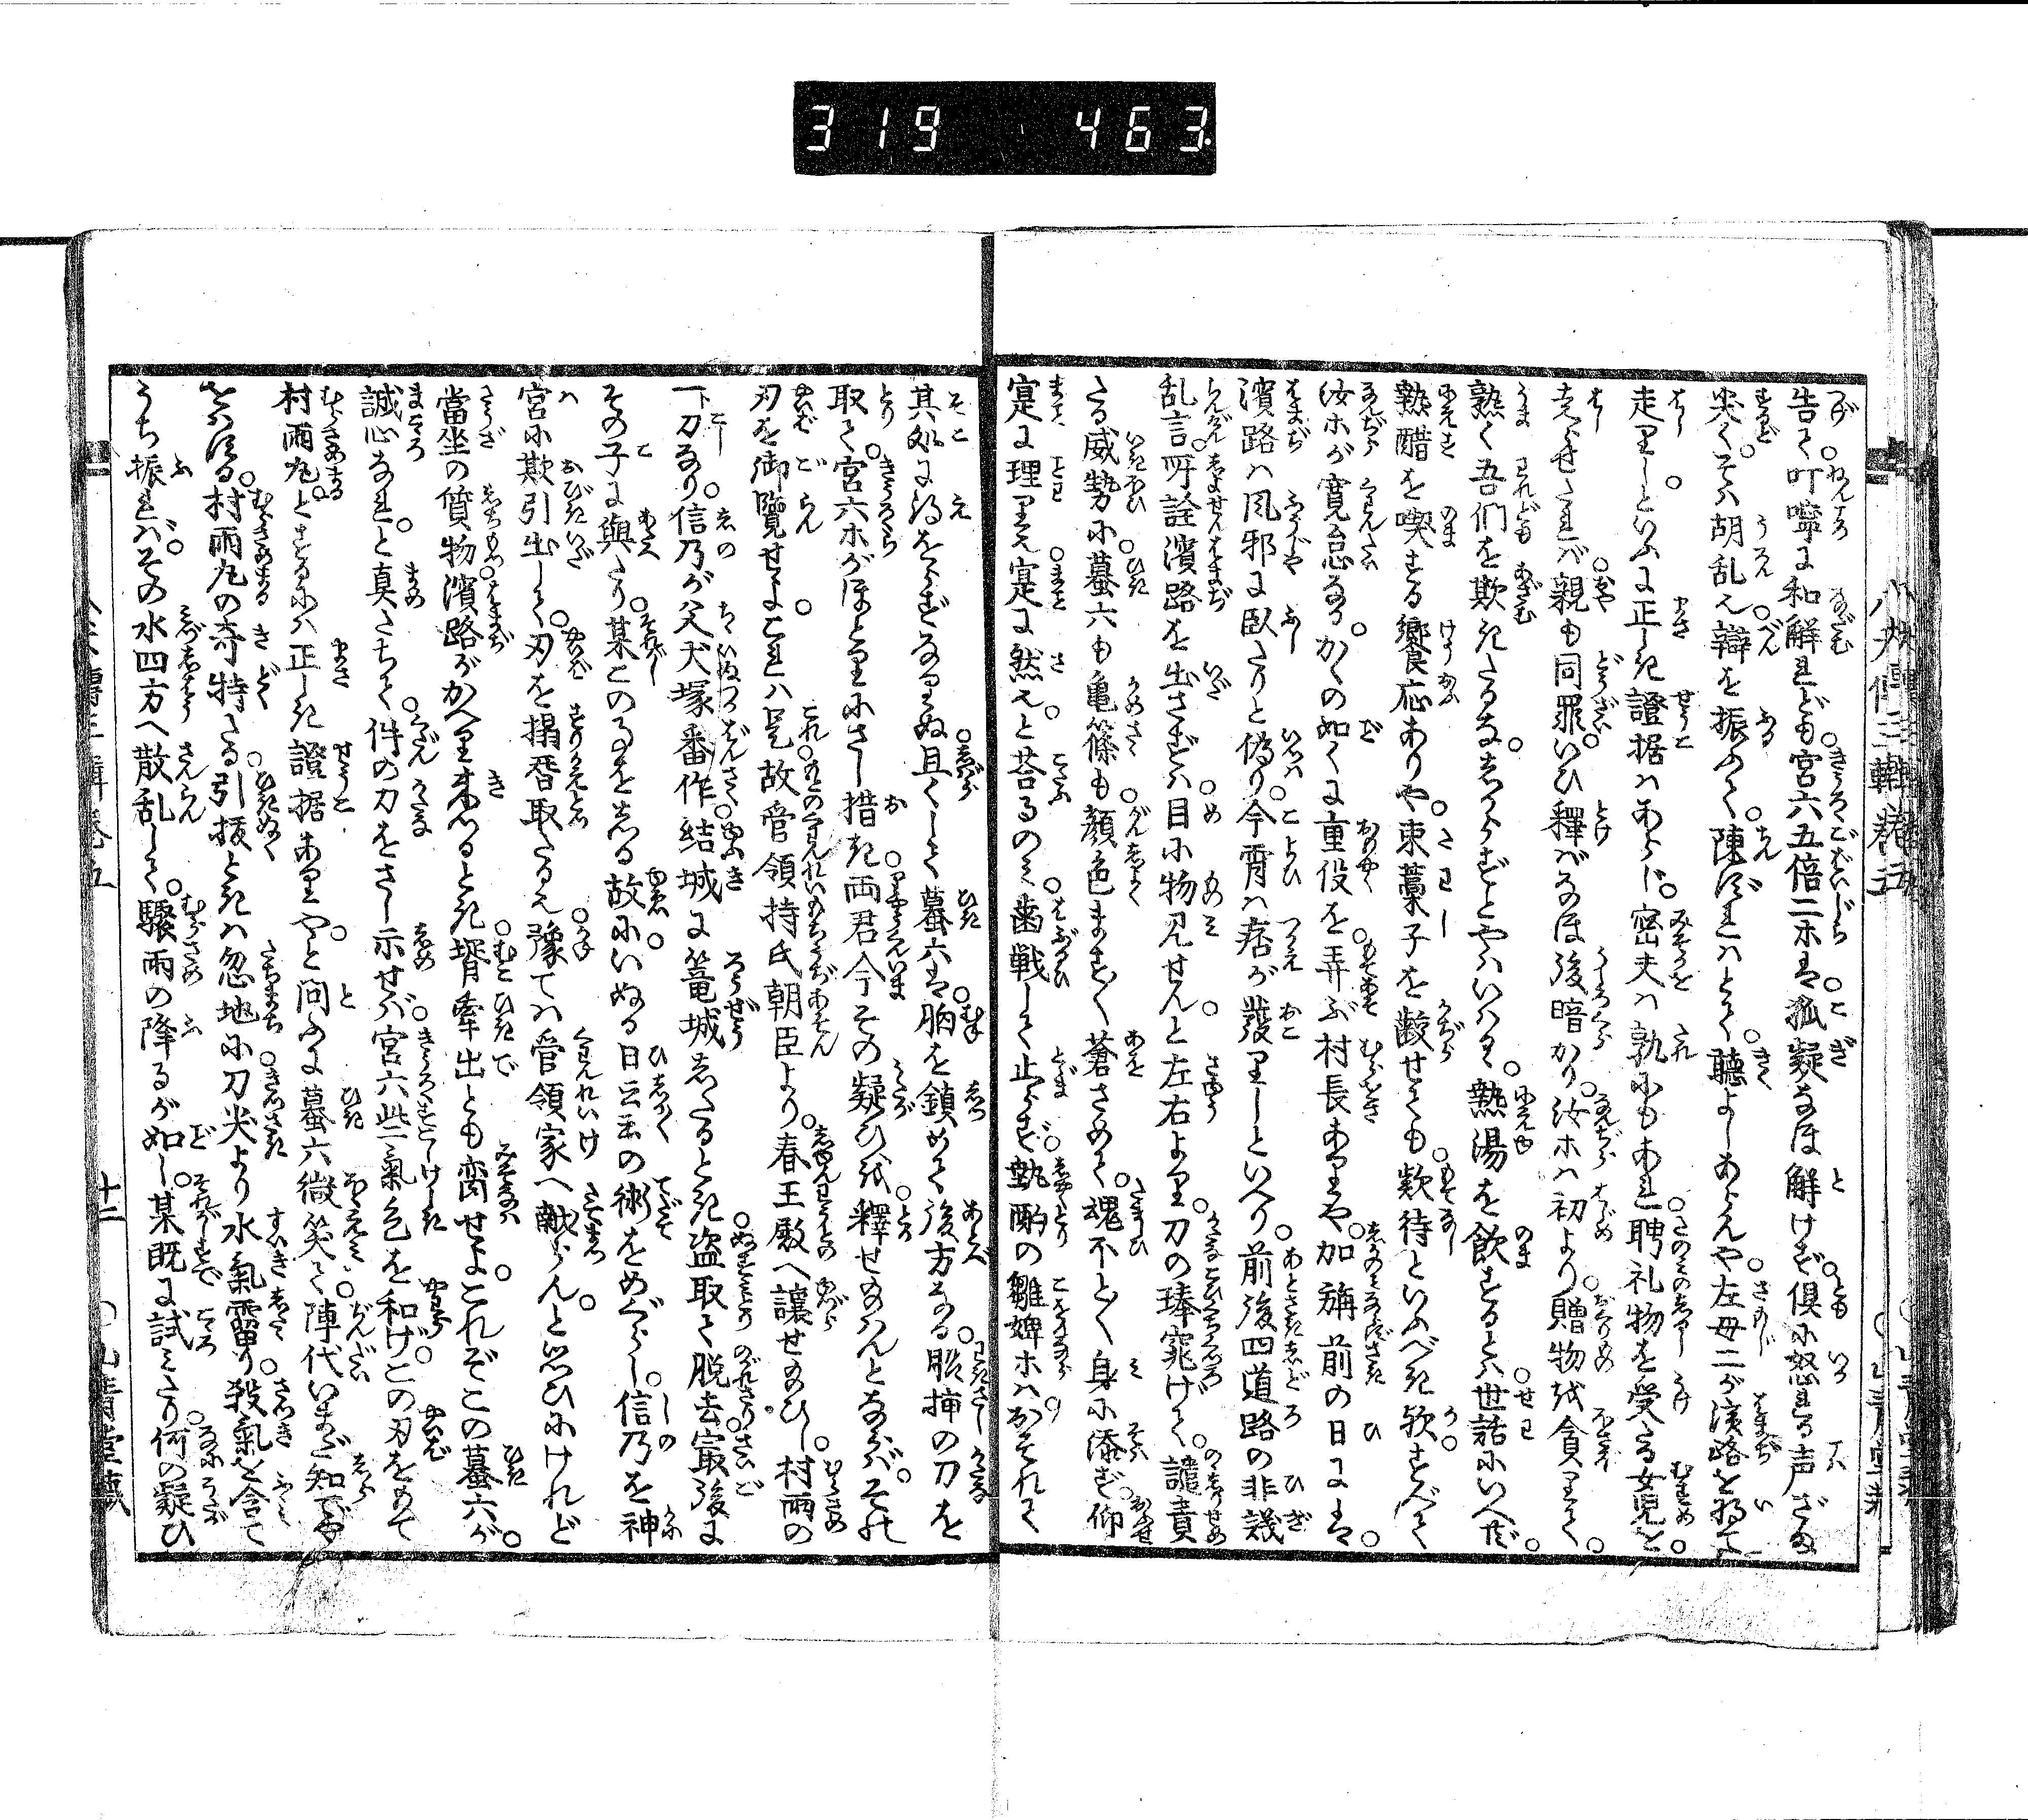 319 463
告て叮嚀に和解れども宮六五倍二ホは狐疑なほ解けず倶に怒れる声ざま
尖くそは胡乱也辯を振ふて陳ずればとて聴よしあらんや左母二が濱路を将て
走りしといふに正しき證据はあらじ密夫は孰にもあれ聘礼物を受たる女児を
走らせたれば親も同罪いひ釋ばなほ後暗かり汝ホは初より贈物を貪りて
熟く吾們を欺きたるなあらずとやはいはる熱湯を飲するとは世話にいへど
熱醋を喫する饗応ありや束藁子を齩せても欵待といふべき欤すべて
汝ホが寛怠なりかくの如くに重役を弄ぶ村長ありや加旃前の日には
濱路は風邪に臥たりと偽り今宵は痞が發りしといへり前後四道路の非議
乱言所詮濱路を出さずは目に物見せんと左右より刀の琫窕げて譴責
たる威勢に蟇六も亀篠も顔色ますます蒼さめて魂不とく身に添ず仰
寔に理り也寔に然也と荅るのみ歯戦して止らず執酌の雛婢ホはおそれて
其処に得をらずなりぬ且くして蟇六は胸を鎮めて後方なる膁挿の刀を
取て宮六ホがほとりにさし措き両君今その疑ひを釋せ給はんとならばその
刃を御覽せよこれは是故管領持氏朝臣より春王殿へ讓せ給ひし村雨の
一刀なり信乃が父犬塚番作結城に篭城したるとき盗取て脱去最後に
その子に與たり某このことをしる故にいぬる日云云の術をめぐらし信乃を神
宮に欺引出して刃を搨替取たる也豫ては管領家へ献らんと思ひにけれど
當坐の質物濱路がかへり来るとき壻牽出とも臠せよこれぞこの蟇六が
誠心なれと真たちて件の刀をさし示せば宮六些氣色を和げこの刃をもて
村雨丸とするには正しき證据ありやと問ふに蟇六微笑て陣代いまだ知ずや
をはする村雨丸の奇特たる引抜ときは忽地に刀尖より水氣霤り殺氣を含て
うち振ればその水四方へ散乱して驟雨の降るが如し某既に試みたり何の疑ひ
八犬傳三輯巻五
十二
山青堂藏